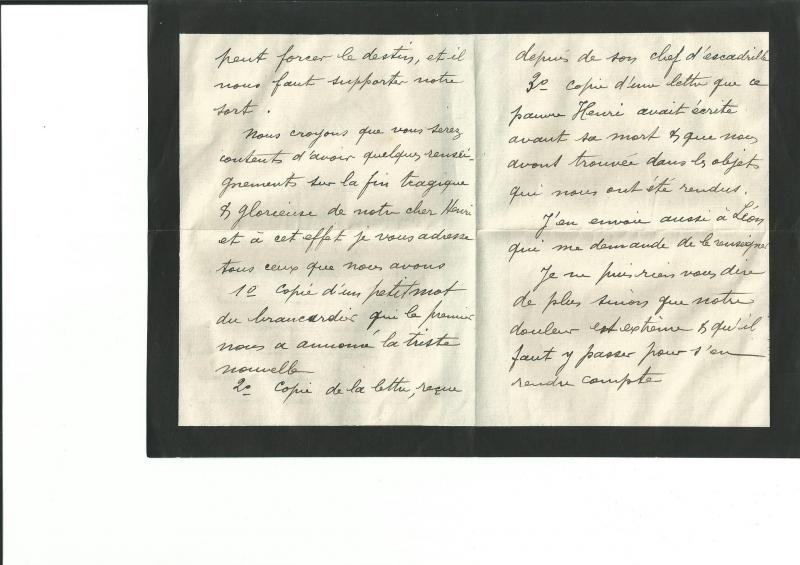 peut forcer le destin, et il
nous faut supporter notre
sort.
Nous croyons que vous serez
contents d'avoir quelques rensei-
gnements sur la fin tragique
& glorieuse de notre cher Henri
et à cet effet je vous adresse
tous ceux que nous avons
1º Copie d'un petit mot
du brancardier qui le premier
nous a annoncé la triste
nouvelle
2º Copie de la lettre, reçue
depuis de son chef d'escadrille
3º Copie d'une lettre que ce
pauvre Henri avait écrite
avant sa mort & que nous
avons trouvée dans les objets
qui nous ont été rendus.
J'en envoie aussi à Léon
qui me demande de le renseigner
Je ne puis rien vous dire
de plus sinon que notre
douleur est extrême & qu'il
faut y passer pour s'en
rendre compte